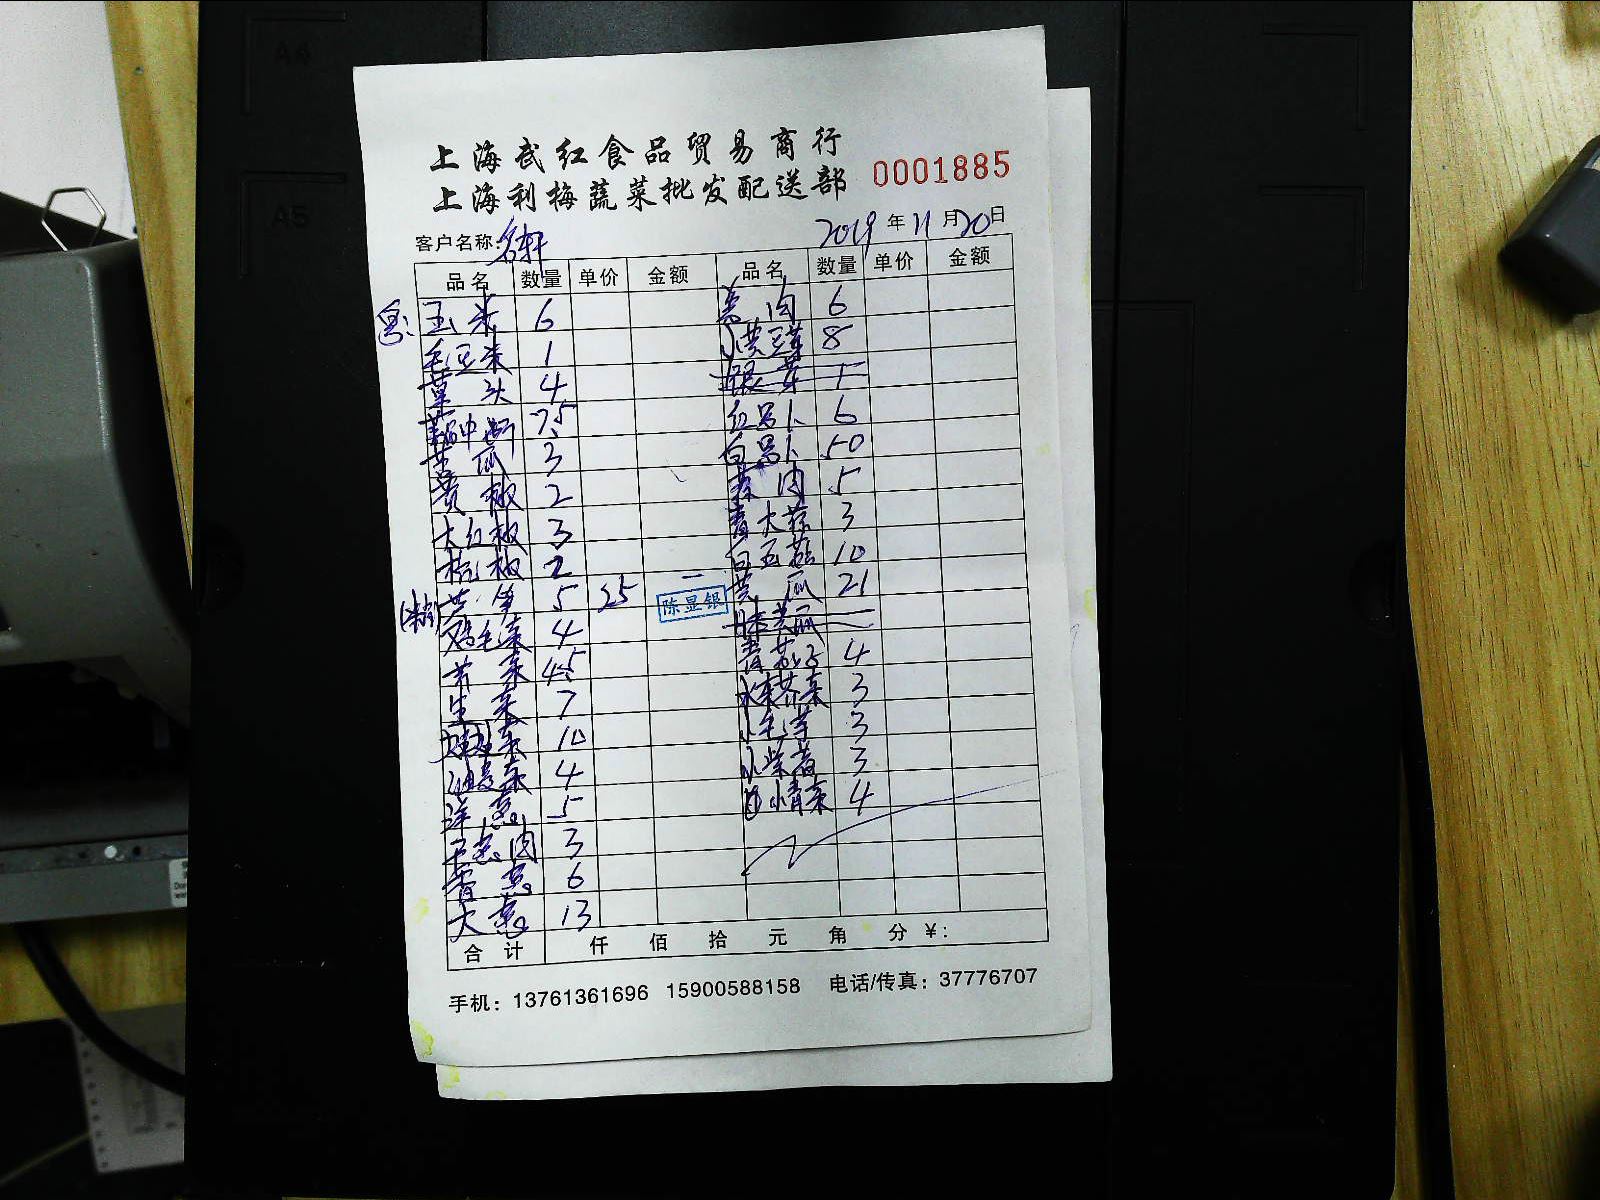 A4
A5
上海武红食品贸易商行
上海利梅蔬菜批发配送部 0001885
客户名称: 名轩 2019年11月20日
品名 数量 单价 金额 品名 数量 单价 金额
玉米 6 肉 6
毛豆米 1 小黄豆芽 8
头 4 银芽 1
7.5 红罗卜 6
瓜 3 白罗卜 50
黄椒 2 蒜肉 5
大红椒 3 青大蒜 3
杭椒 2 白玉菇 10
5 25 陈显银 黄瓜 21
鸡毛菜 4
芹菜 4.5 青茄子 4
生菜 7 水东芥菜 3
菜 10 小毛芋 3
油麦菜 4 小紫薯 3
洋葱 5 小青菜 4
干葱肉 3
香葱 6
大葱 13
合计 仟 佰 拾 元 角 分 ¥:
手机: 13761361696 15900588158 电话/传真: 37776707